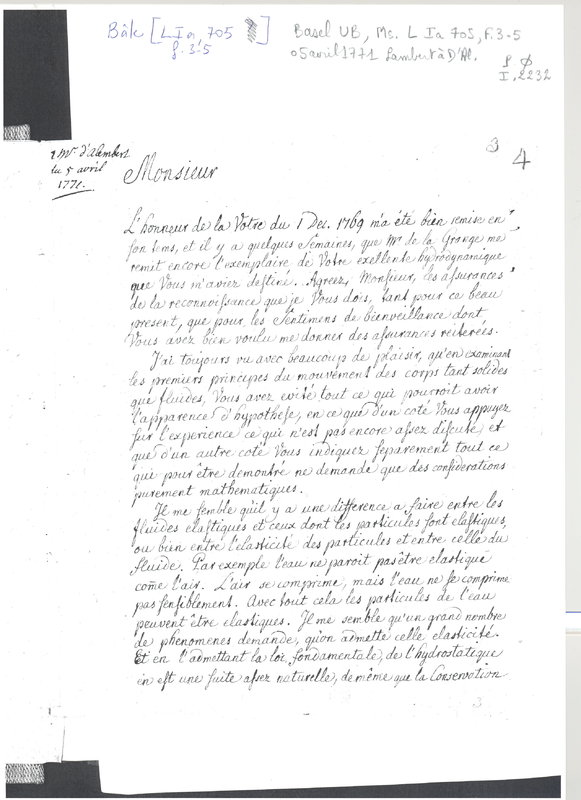 Bâle [L Ia, 705
f. 3-5
Basel UB, Ms. L Ia 705, f. 3-5
05 avril 1771 Lambert à D'Al.
I, 2232
3
4
à Mr. d'Alembert
du 5 avril
1771.
Monsieur
L'honneur de la Votre du 1 Dec. 1769 m'a été bien remise en
son tems, et il y a quelques Semaines, que Mr de la Grange me
remit encore l'exemplaire de Votre exellente hydrodynamique
que Vous m'aviez destiné. Agreez, Monsieur, les assurances
de la reconnoissance que je Vous dois, tant pour ce beau
present, que pour les Sentimens de bienveillance dont
Vous avez bien voulu me donner des assurances reiterées.
J'ai toujours vu avec beaucoup de plaisir, qu'en examinant
les premiers principes du mouvement des corps tant solides
que fluides, Vous avez evité tout ce qui pourroit avoir
l'apparence d'hypothese, en ce que d'un coté Vous appuyez
sur l'experience ce qui n'est pas encore assez discuté, et
que d'un autre coté Vous indiquez separement tout ce
qui pour être demontré ne demande que des considerations
purement mathematiques.
Je me semble qu'il y a une difference a faire entre les
fluides elastiques et ceux dont les particules sont elastiques,
ou bien entre l'elasticité des particules et entre celle du
fluide. Par exemple l'eau ne paroit pas être elastique
come l'air. L'air se comprime, mais l'eau ne se comprime
pas sensiblement. Avec tout cela les particules de l'eau
peuvent être elastiques. Il me semble qu'un grand nombre
de phenomenes demande, qu'on admette celle elasticité.
Et en l'admettant la loi fondamentale, de l'hydrostatique
en est une suite assez naturelle, de même que la Conservation
3